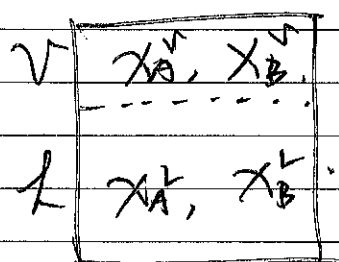 V x_A^V, x_B^V.
L x_A^L, x_B^L.